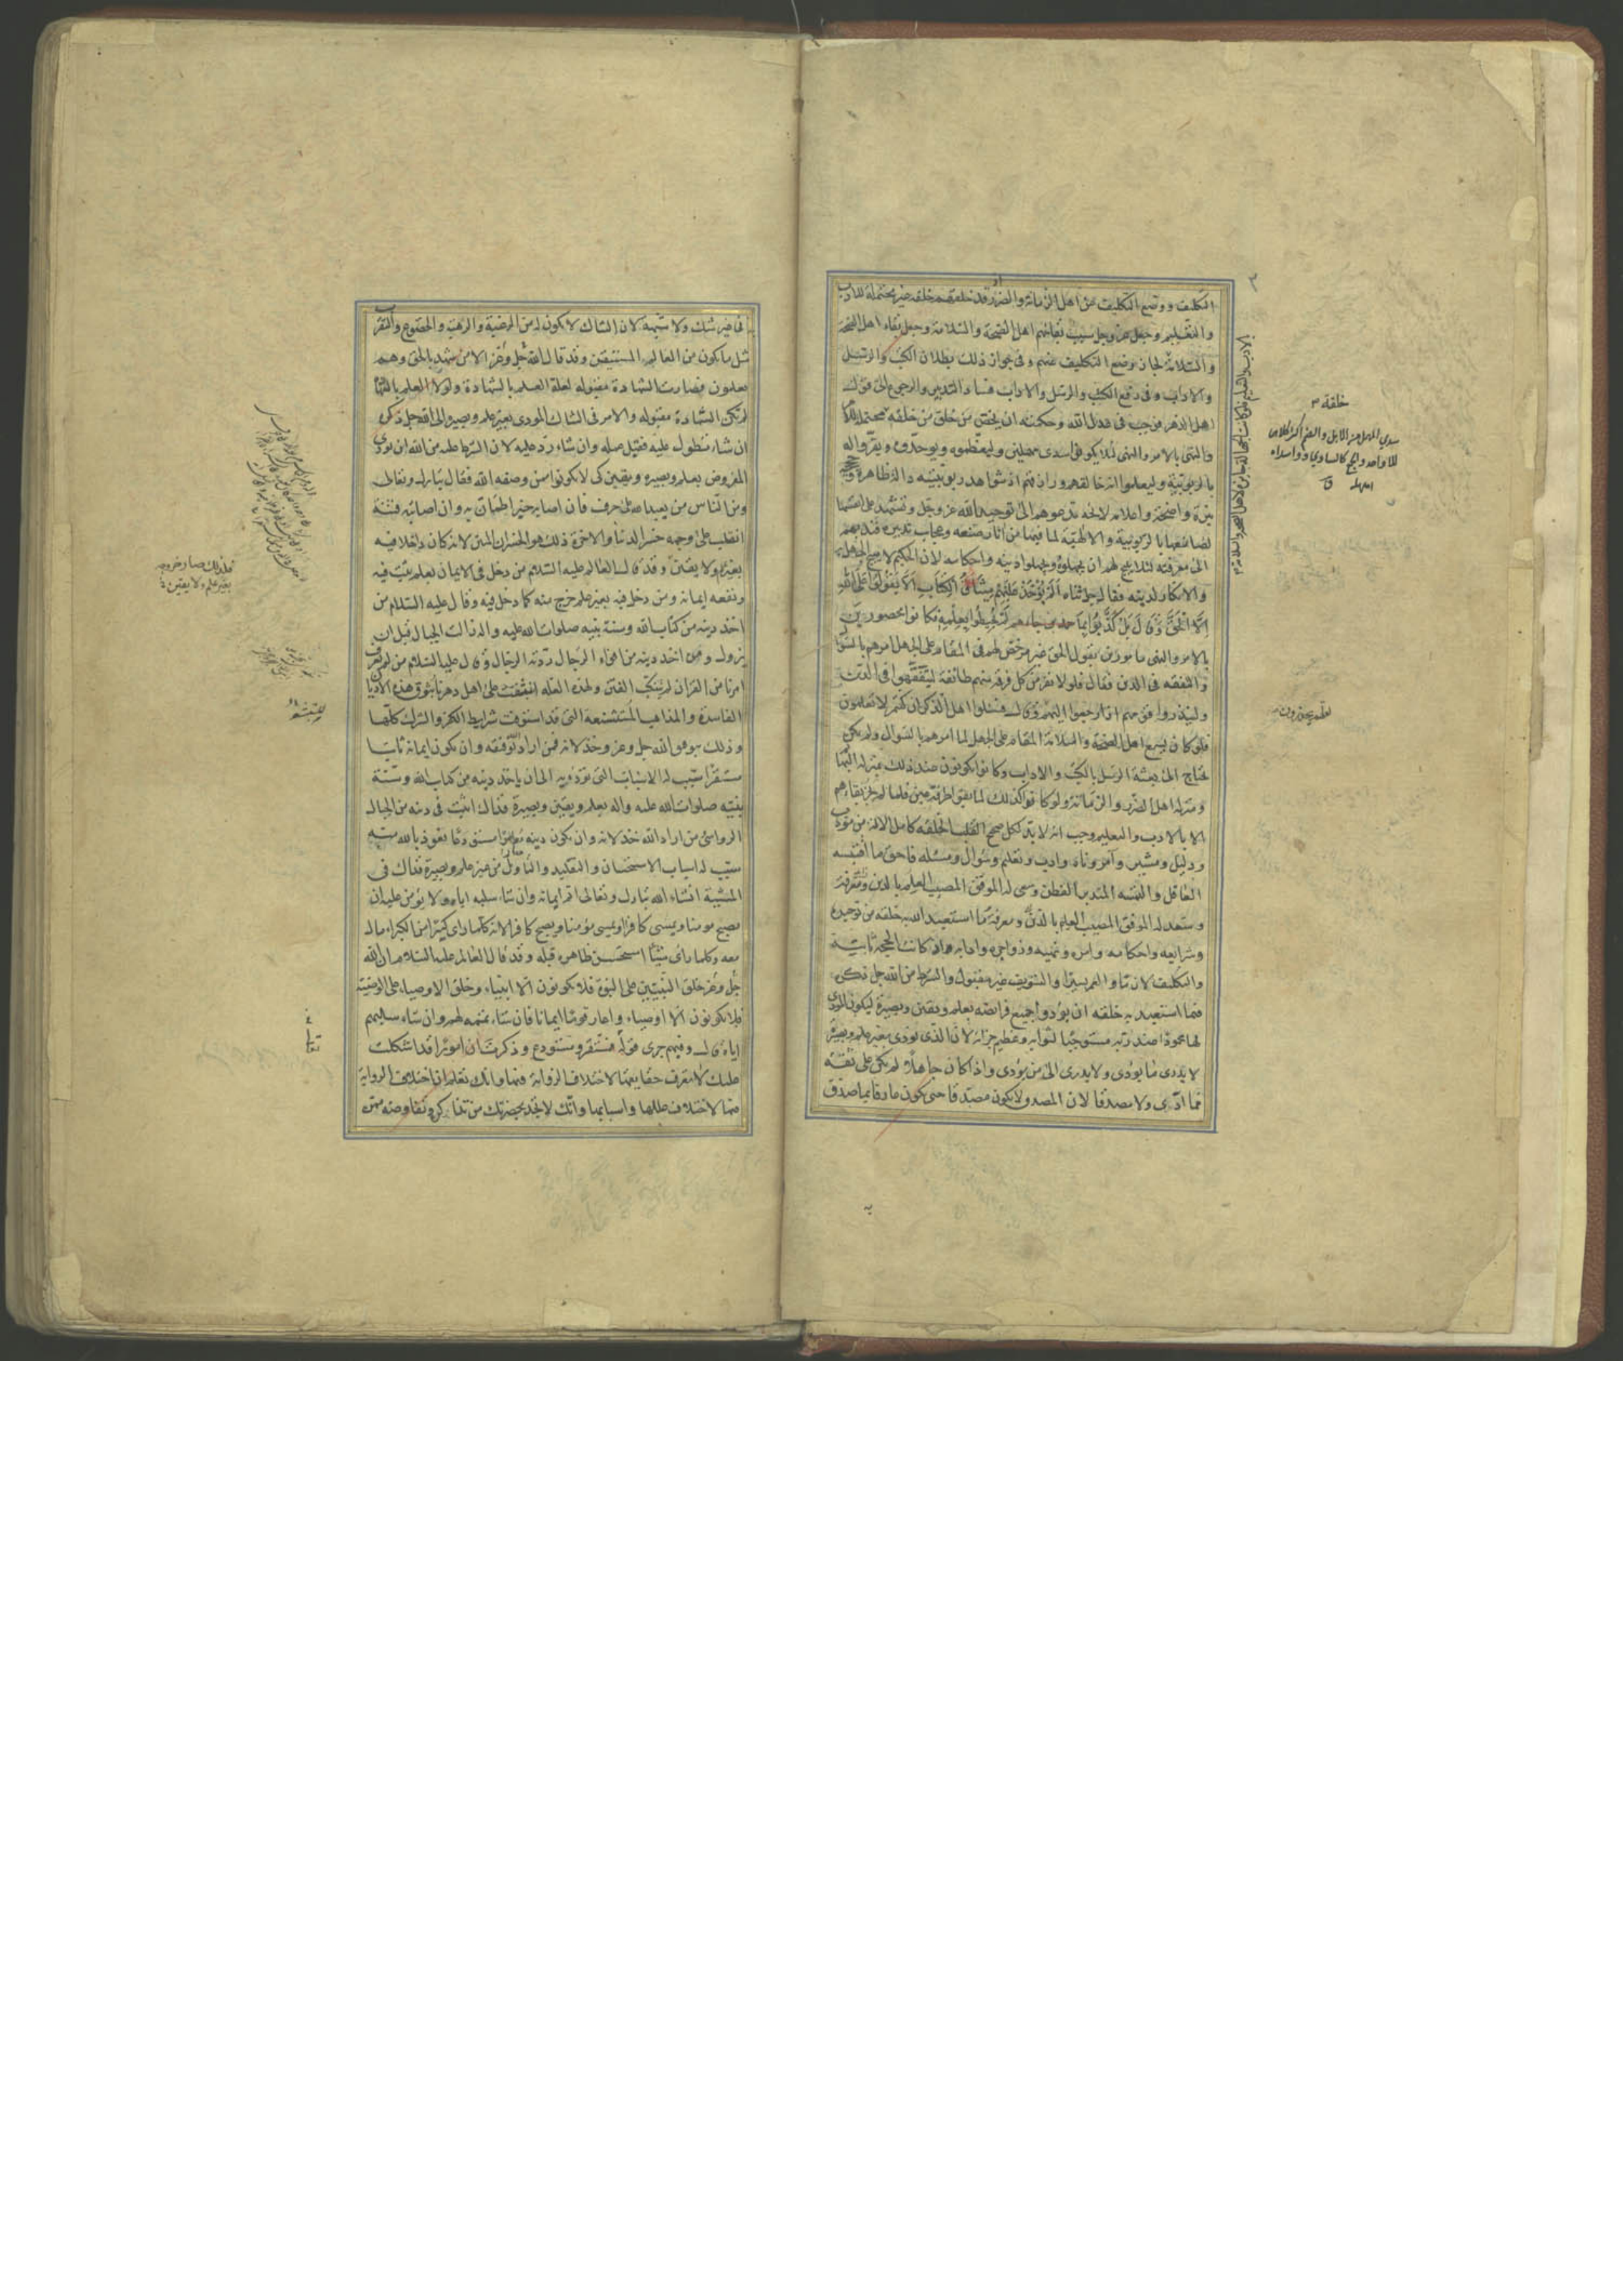 التكليف ووضع التكليف عن اهل الزمانة والضرر قد خلقهم خلقه غير محتملة للادب
والتعليم وجعل عز وجل سبب بقائهم اهل الصحة والسلامة وجعل بقاء اهل الصحة
والسلامة لجاز وضع التكليف عنهم وفى جواز ذلك بطلان الكتب والرسل
والاداب وفى رفع الكتب والرسل والاداب فساد التدبير والرجوع الى قول
اهل الدهر فوجب فى عدل الله وحكمته ان يخص من خلق من خلقه خلقة محتملة للامر
والنهى بالامر والنهى لئلا يكونوا سدى مهملين وليعظموه ويوحدوه ويقروا له
بالربوبية وليعلموا انه خالقهم ورازقهم اذ شواهد ربوبيته دالة ظاهرة وحججه
نيرة واضحة واعلامه لائحة تدعوهم الى توحيد الله عز وجل وتشهد على انفسها
لصانعها بالربوبية والالهية لما فيها من اثار صنعه وعجايب تدبيره فندبهم
الى معرفته لئلا يبيح لهم ان يجهلوه ويجهلوا دينه واحكامه لان الحكيم لا يبيح الجهل به
والانكار لدينه فقال جل ثناءه الم يؤخذ عليهم ميثاق الكتاب الا يقولوا على الله
الا الحق وقال بل كذبوا بما لم يحيطوا بعلمه فكانوا محصورين
بالامر والنهى مامورين بقول الحق غير مرخص لهم فى المقام على الجهل امرهم بالسؤال
والتفقه فى الدين فقال فلولا نفر من كل فرقة منهم طائفة ليتفقهوا فى الدين
ولينذروا قومهم اذا رجعوا اليهم وقال فسئلوا اهل الذكر ان كنتم لا تعلمون
فلو كان يسع اهل الصحة والسلامة المقام على الجهل لما امرهم بالسؤال ولم يكن
يحتاج الى بعثة الرسل بالكتب والاداب وكانوا يكونون عند ذلك بمنزلة البهايم
ومنزلة اهل الضرر والزمانة ولو كانوا كذلك لما بقوا طرفة عين فلما لم يجز بقاءهم
الا بالادب والتعليم وجب انه لا بد لكل صحيح الخلقة كامل الالة من مؤدب
ودليل ومشير وامر وناه وادب وتعليم وسؤال ومسئلة فاحق ما اقتبسه
العاقل والتمسه المتدبر الفطن وسعى له الموفق المصيب العلم بالدين ومعرفة
ما استعبد الله به خلقه من توحيده
وشرايعه واحكامه وامره ونهيه وزواجره وادابه اذ كانت الحجة ثابتة
والتكليف لازما والعمر يسيرا والتسويف غير مقبول والشرط من الله جل ذكره
فيما استعبد به خلقه ان يؤدوا جميع فرائضه بعلم ويقين وبصيرة ليكون المؤدى
لها محمودا عند ربه مستوجبا لثوابه وعظيم جزائه لان الذى يؤدى بغير علم وبصيرة
لا يدرى ما يؤدى ولا يدرى الى من يؤدى واذا كان جاهلا لم يكن على ثقة
مما ادى ولا مصدقا لان المصدق لا يكون مصدقا حتى يكون عارفا بما صدق
خلقة
لعلهم يحذرون
به من غير شك ولا شبهة لان الشاك لا يكون له من الرغبة والرهبة والخضوع والتقرب
مثل ما يكون من العالم المستيقن وقد قال الله جل وعز الا من شهد بالحق وهم
يعلمون فصارت الشهادة مقبولة لعلة العلم بالشهادة ولولا العلم بالشهادة
لم تكن الشهادة مقبولة والامر فى الشاك المؤدى بغير علم وبصيرة الى الله جل ذكره
ان شاء تطول عليه فقبل عمله وان شاء رد عليه لان الشرط عليه من الله ان يؤدى
المفروض بعلم وبصيرة ويقين كى لا يكونوا ممن وصفه الله فقال تبارك وتعالى
ومن الناس من يعبد الله على حرف فان اصابه خير اطمان به وان اصابته فتنة
انقلب على وجهه خسر الدنيا والاخرة ذلك هو الخسران المبين لانه كان داخلا فيه
بغير علم ولا يقين وقد قال العالم عليه السلام من دخل فى الايمان بعلم ثبت فيه
ونفعه ايمانه ومن دخل فيه بغير علم خرج منه كما دخل فيه وقال عليه السلام من
اخذ دينه من كتاب الله وسنة نبيه صلوات الله عليه واله زالت الجبال قبل ان
يزول ومن اخذ دينه من افواه الرجال ردته الرجال وقال عليه السلام من لم يعرف
امرنا من القران لم يتنكب الفتن ولهذه العلة انبثقت على اهل دهرنا بثوق هذه الاديان
الفاسدة والمذاهب المستشنعة التى قد استوفت شرايط الكفر والشرك كلها
وذلك بتوفيق الله جل وعز وخذلانه فمن اراد توفيقه وان يكون ايمانه ثابتا
مستقرا سبب له الاسباب التى تؤديه الى ان ياخذ دينه من كتاب الله وسنة
نبيه صلوات الله عليه واله بعلم ويقين وبصيرة فذاك اثبت فى دينه من الجبال
الرواسى ومن اراد الله خذلانه وان يكون دينه معارا مستودعا نعوذ بالله منه
سبب له اسباب الاستحسان والتقليد والتاويل من غير علم وبصيرة فذاك فى
المشية ان شاء الله تبارك وتعالى اتم ايمانه وان شاء سلبه اياه ولا يؤمن عليه ان
يصبح مومنا ويمسى كافرا او يمسى مؤمنا ويصبح كافرا لانه كلما راى كبيرا من الكبراء مال
معه وكلما راى شيئا استحسن ظاهره قبله وقد قال العالم عليه السلام ان الله
جل وعز خلق النبيين على النبوة فلا يكونون الا انبياء وخلق الاوصياء على الوصية
فلا يكونون الا اوصياء واعار قوما ايمانا فان شاء تممه لهم وان شاء سلبهم
اياه قال وفيهم جرى قوله فمستقر ومستودع وذكرت ان امورا قد اشكلت
عليك لا تعرف حقايقها لاختلاف الرواية فيها وانك تعلم ان اختلاف الرواية
فيها لاختلاف عللها واسبابها وانك لا تجد بحضرتك من تذاكره وتفاوضه ممن
فلذلك صار خروجه
بغير علم ولا يقين